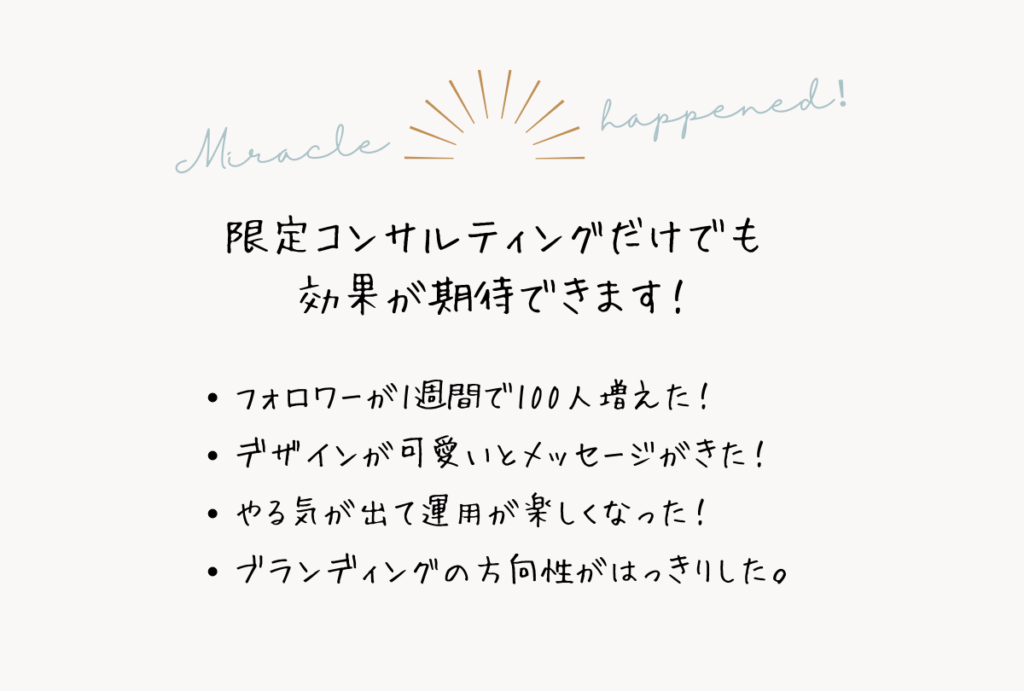 Miracle happened!
限定コンサルティングだけでも
効果が期待できます!
• フォロワーが1週間で100人増えた!
• デザインが可愛いとメッセージがきた!
• やる気が出て運用が楽しくなった!
• ブランディングの方向性がはっきりした。